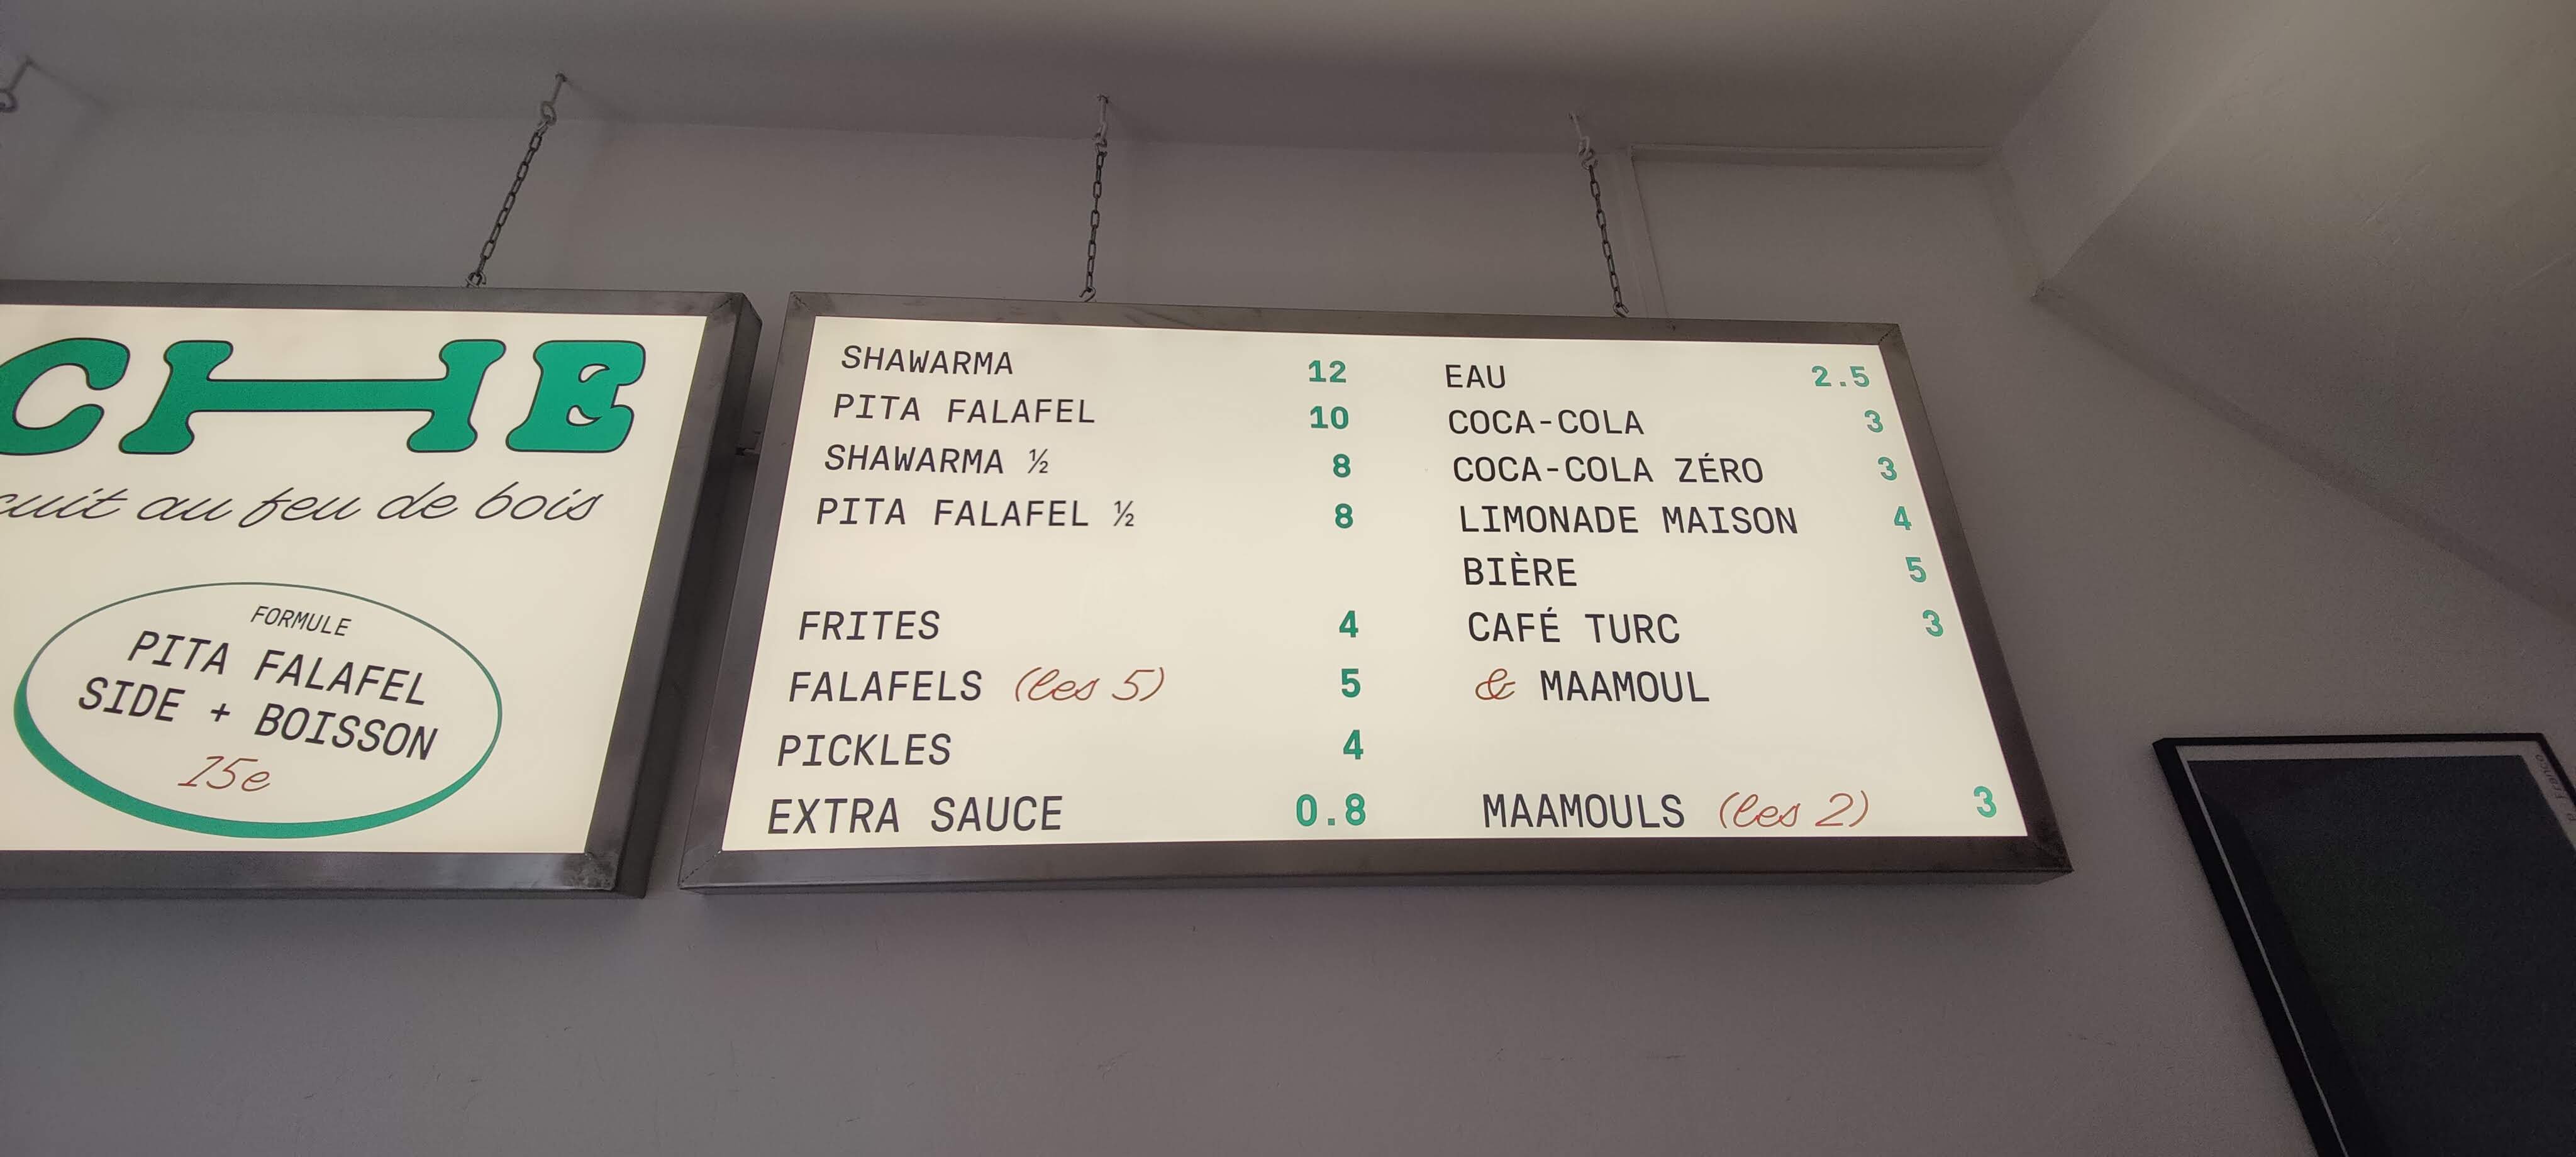 CHE
cuit au feu de bois
FORMULE
PITA FALAFEL
SIDE + BOISSON
15e
SHAWARMA 12
PITA FALAFEL 10
SHAWARMA ½ 8
PITA FALAFEL ½ 8
FRITES 4
FALAFELS (les 5) 5
PICKLES 4
EXTRA SAUCE 0.8
EAU 2.5
COCA-COLA 3
COCA-COLA ZÉRO 3
LIMONADE MAISON 4
BIÈRE 5
CAFÉ TURC 3
& MAAMOUL
MAAMOULS (les 2) 3